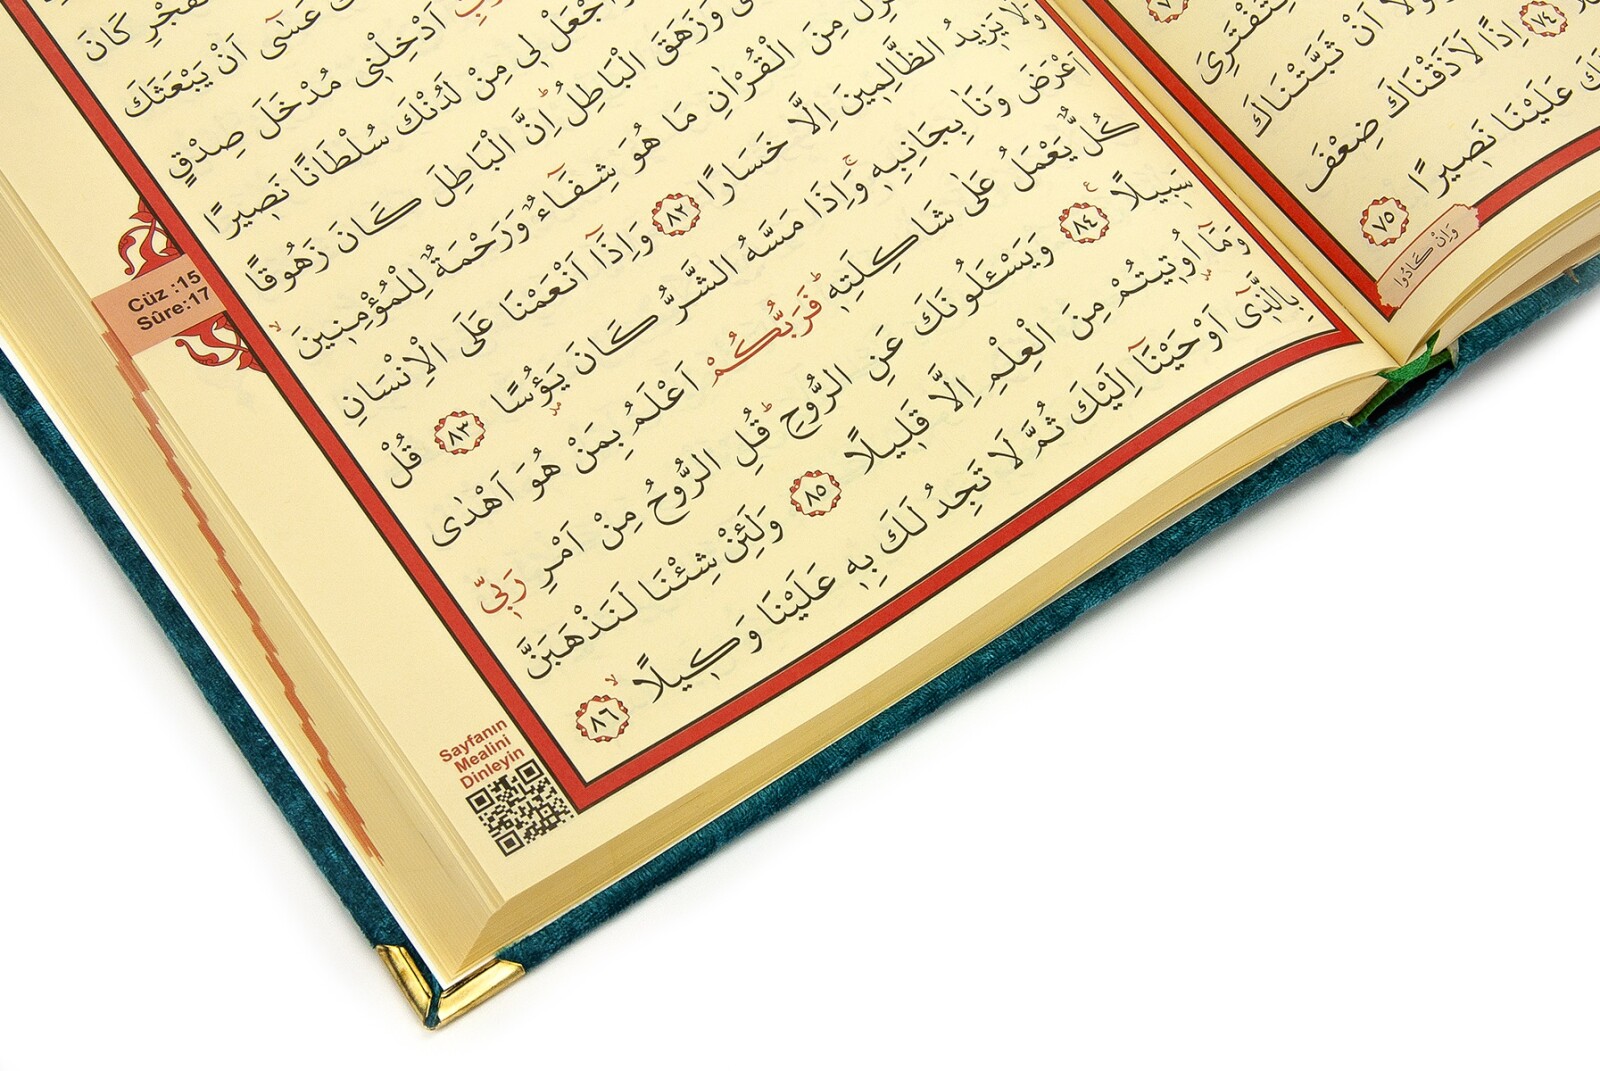 لِتَفْتَرِىَ
اَنْ ثَبَّتْنَاكَ
٧٤ اِذًا لَاَذَقْنَاكَ ضِعْفَ
عَلَيْنَا نَصٖيرًا ٧٥
وَاِنْ كَادُوا
كَانَ
عَسٰٓى اَنْ يَبْعَثَكَ
اَدْخِلْنٖى مُدْخَلَ صِدْقٍ
لٖى مِنْ لَدُنْكَ سُلْطَانًا نَصٖيرًا
وَزَهَقَ الْبَاطِلُ اِنَّ الْبَاطِلَ كَانَ زَهُوقًا
مِنَ الْقُرْاٰنِ مَا هُوَ شِفَٓاءٌ وَرَحْمَةٌ لِلْمُؤْمِنٖينَ
وَلَا يَزٖيدُ الظَّالِمٖينَ اِلَّا خَسَارًا ٨٢ وَاِذَٓا اَنْعَمْنَا عَلَى الْاِنْسَانِ
اَعْرَضَ وَنَاٰ بِجَانِبِهٖ وَاِذَا مَسَّهُ الشَّرُّ كَانَ يَؤُسًا ٨٣ قُلْ
كُلٌّ يَعْمَلُ عَلٰى شَاكِلَتِهٖ فَرَبُّكُمْ اَعْلَمُ بِمَنْ هُوَ اَهْدٰى
سَبٖيلًا ٨٤ وَيَسْـَٔلُونَكَ عَنِ الرُّوحِ قُلِ الرُّوحُ مِنْ اَمْرِ رَبّٖى
وَمَٓا اُوتٖيتُمْ مِنَ الْعِلْمِ اِلَّا قَلٖيلًا ٨٥ وَلَئِنْ شِئْنَا لَنَذْهَبَنَّ
بِالَّذٖٓى اَوْحَيْنَٓا اِلَيْكَ ثُمَّ لَا تَجِدُ لَكَ بِهٖ عَلَيْنَا وَكٖيلًا ٨٦
Cüz :15
Sûre:17
Sayfanın
Mealini
Dinleyin